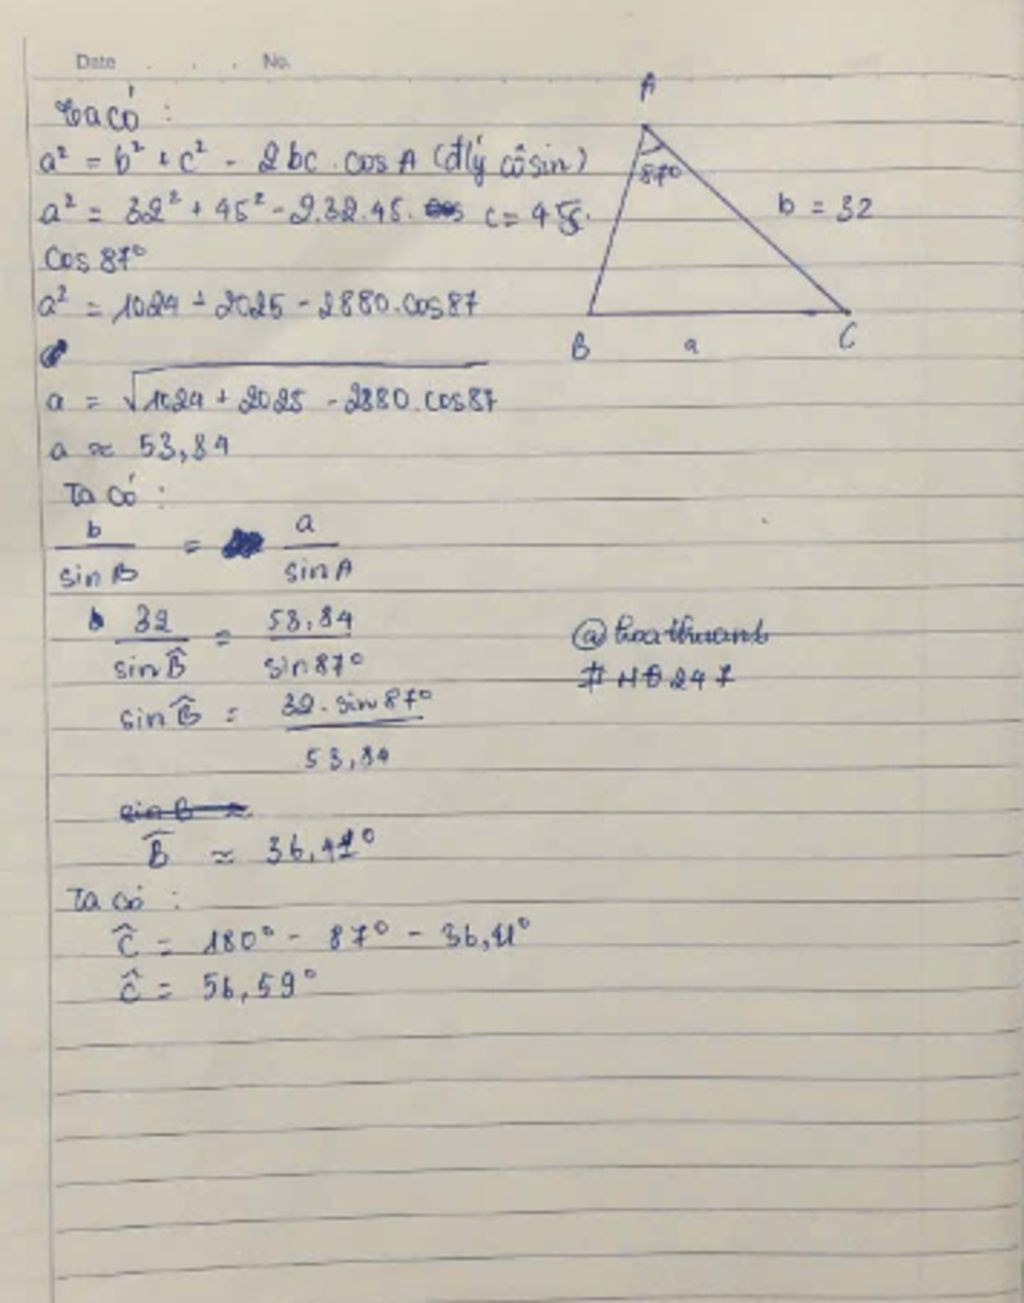 Date No.
Ta có :
a² = b² + c² - 2bc . cos A (đlý côsin)
a² = 32² + 45² - 2.32.45.
cos 87°
a² = 1024 + 2025 - 2880.cos87
a = √1024 + 2025 - 2880.cos87
a ≈ 53,84
Ta có :
b/sin B = a/sin A
32/sin B̂ = 53,84/sin 87°
sin B̂ = 32 . sin 87°/53,84
sin B ≈
B̂ ≈ 36,41°
Ta có :
Ĉ = 180° - 87° - 36,41°
Ĉ = 56,59°
A
87°
c = 45
b = 32
B
a
C
@hoathuanb
#HĐ247